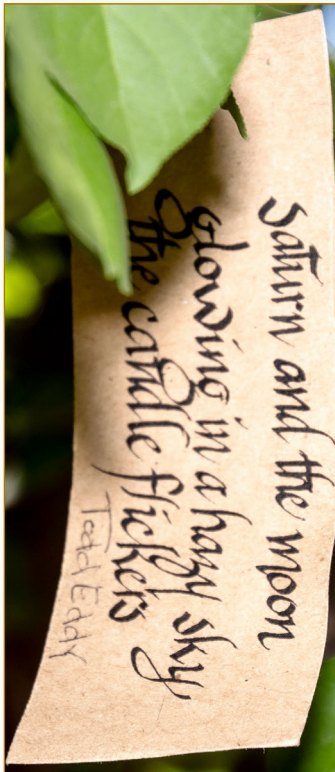 Saturn and the moon
glowing in a hazy sky
the candle flickers
Todd Eddy